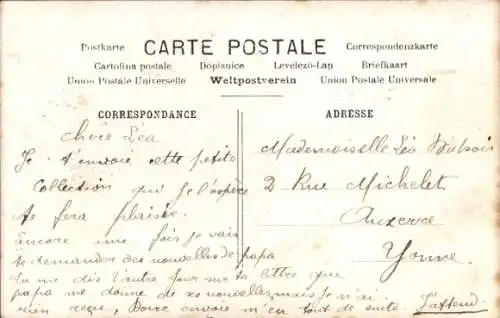 Postkarte CARTE POSTALE Correspondenzkarte
Cartolina postale Dopisnice Levelező-Lap Briefkaart
Union Postale Universelle Weltpostverein Union Postale Universale
CORRESPONDANCE
chère Léa
Je t'envoie cette petite
Collection qui je l'espère
te fera plaisir.
Encore une fois je vais
te demander des nouvelles de papa
tu me dis l'autre jour sur ta lettre que
papa me donne de ses nouvelles mais je n'ai
rien reçu, Donc envoie m'en tout de suite. J'attend.
ADRESSE
Mademoiselle Léa
2 Rue Michelet
Auxerre
Yonne.